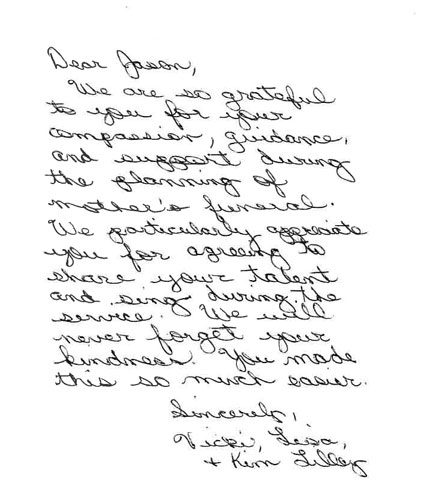 Dear Jason,
We are so grateful
to you for your
compassion, guidance,
and support during
the planning of
mother's funeral.
We particularly appreciate
you for agreeing to
share your talent
and sing during the
service. We will
never forget your
kindness. You made
this so much easier.
Sincerely,
Vicki, Lisa,
+ Kim Lilley